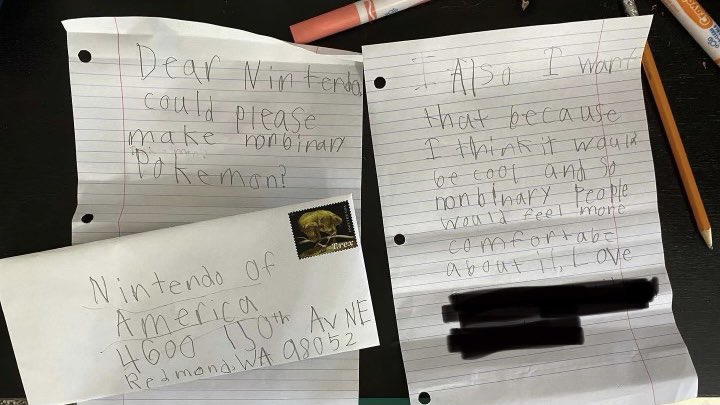 Dear Nintendo
could please
make nonbinary
Pokemon?
Also I want
that because
I think it would
be cool and so
nonbinary People
would feel more
comfortabe
about it, Love
T.rex
Nintendo of
America
4600 150th Av NE
Redmond, WA 98052